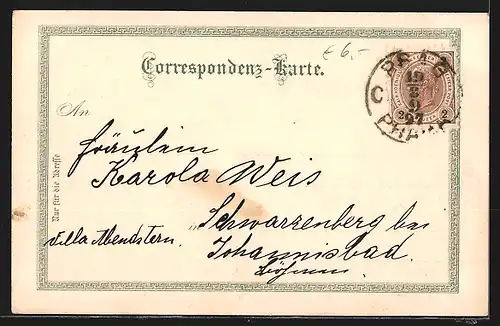 € 6,-
Correspondenz-Karte.
PRAG
12 8 97
C
PRAHA
2 2
An
Nur für die Adresse
Fräulein
Karola Weis
Villa Abendstern.
„Schwarzenberg bei
Johannisbad.
Böhmen